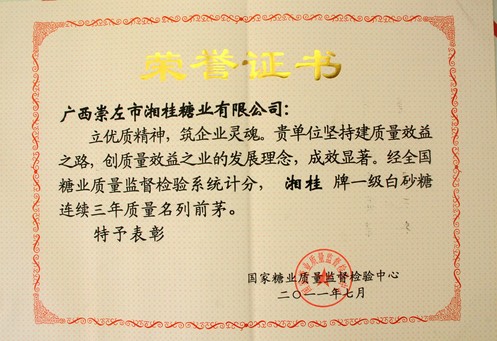 荣誉证书
广西崇左市湘桂糖业有限公司：
立优质精神，筑企业灵魂。贵单位坚持建质量效益
之路，创质量效益之业的发展理念，成效显著。经全国
糖业质量监督检验系统计分， 湘桂 牌一级白砂糖
连续三年质量名列前茅。
特予表彰
国家糖业质量监督检验中心
二〇一一年七月